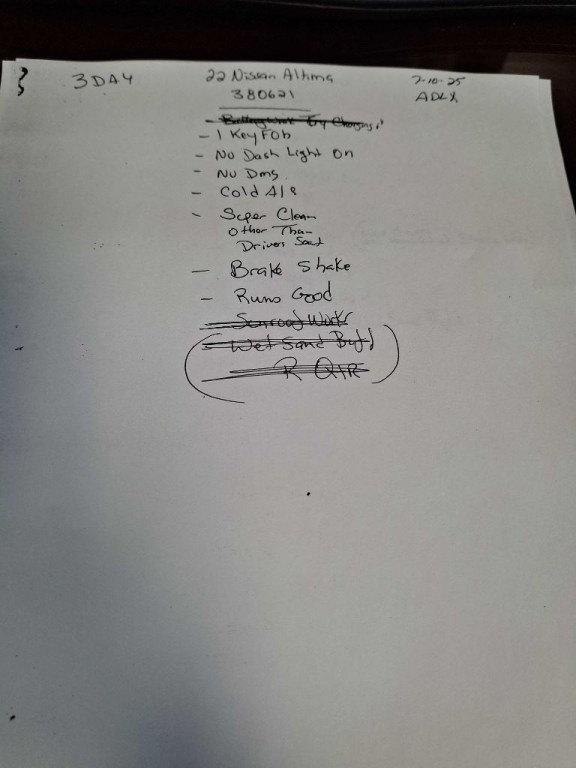 3 DAY 22 Nissan Altima 7-10-25
380621 ADEX
- Battery Weak Try Charging
- 1 Key Fob
- No Dash Light On
- No Dms
- Cold A/C
- Super Clean
Other Than
Drivers Seat
- Brake Shake
- Runs Good
- Sunroof Works
- Wet Sand Buff
R QTR